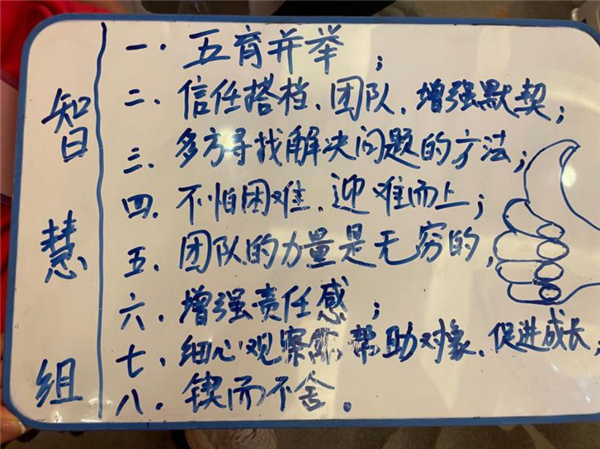 智慧组
一. 五育并举;
二. 信任搭档、团队,增强默契;
三. 多方寻找解决问题的方法;
四. 不怕困难,迎难而上;
五. 团队的力量是无穷的,
六. 增强责任感;
七. 细心观察 帮助对象,促进成长;
八. 锲而不舍.